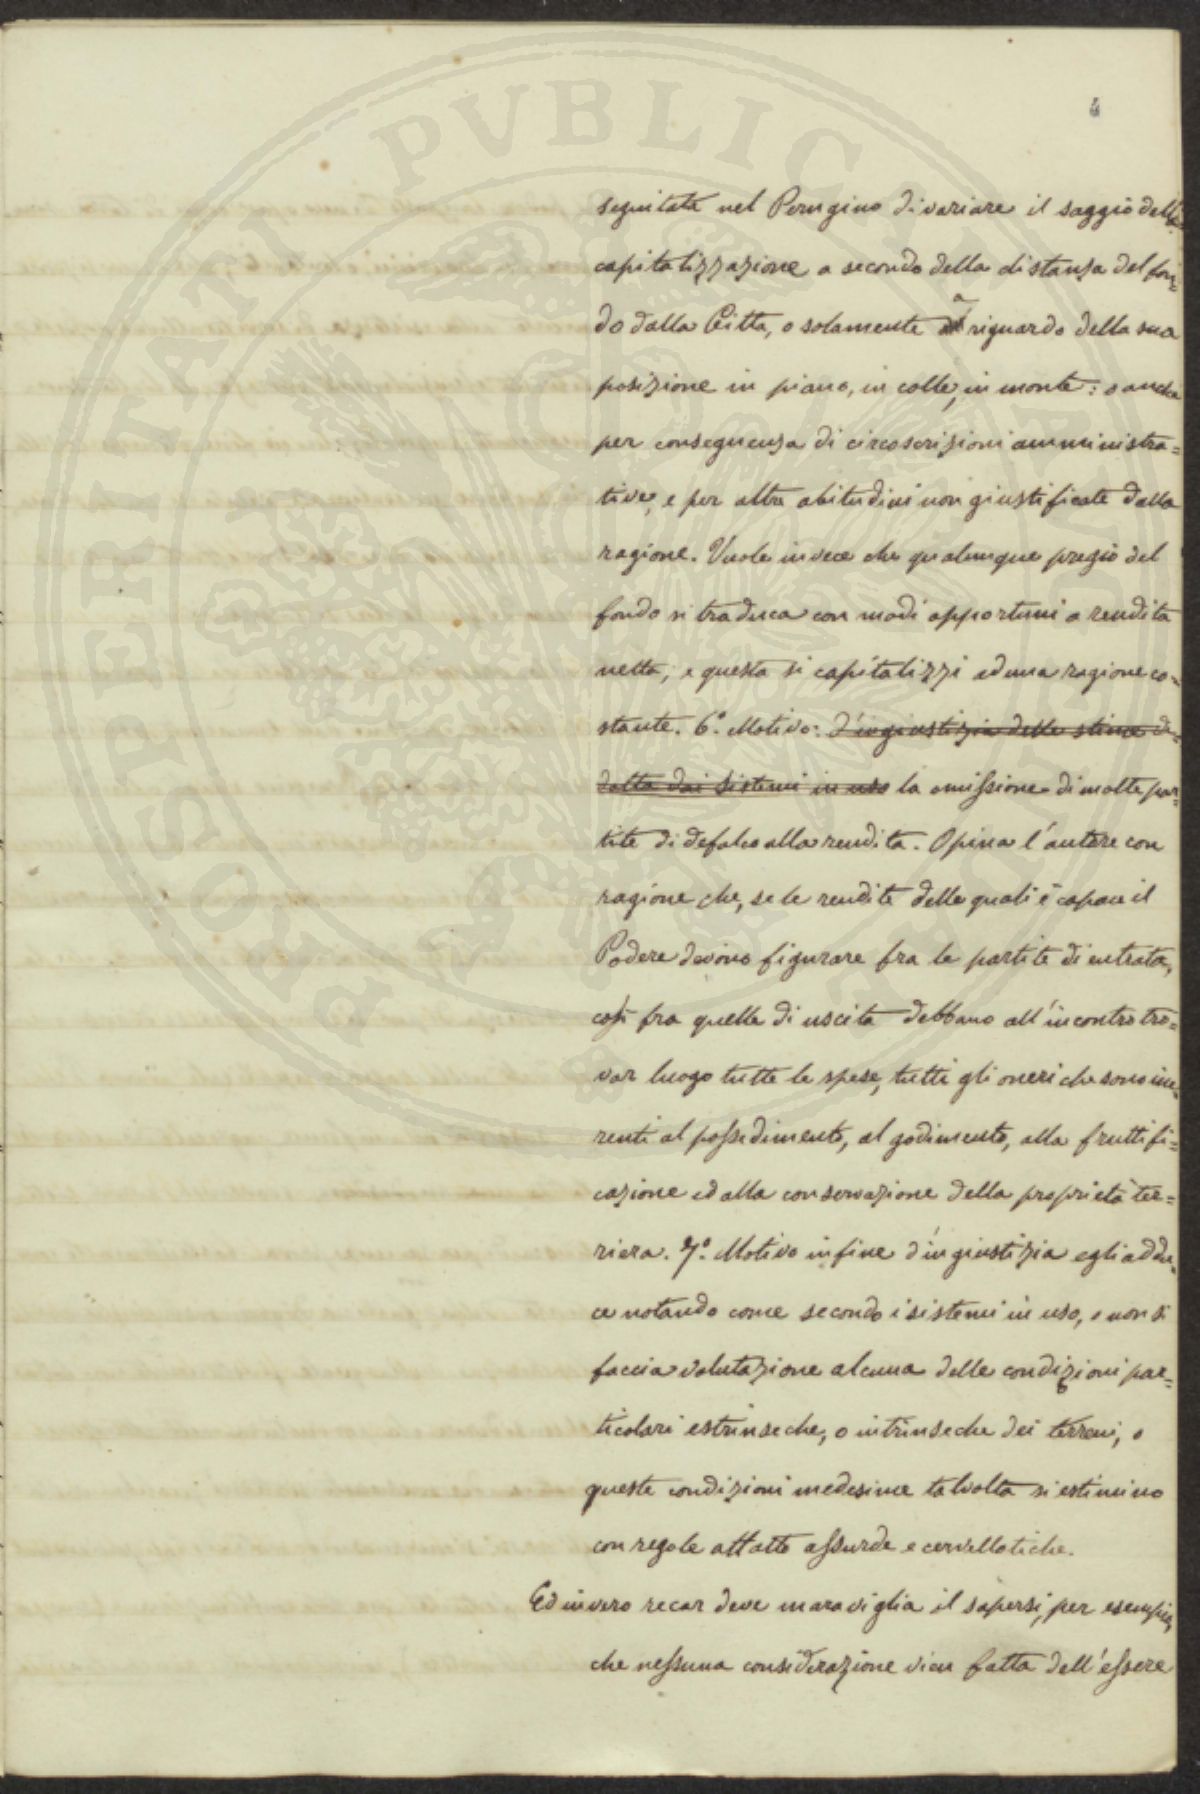 4
seguitata nel Perugino di variare il saggio della
capitalizzazione a secondo della distanza del fon=
do dalla Città, o solamente a riguardo della sua
posizione in piano, in colle, in monte: o anche
per conseguenza di circoscrizioni amministra=
tive, e per altre abitudini non giustificate dalla
ragione. Vuole invece che qualunque pregio del
fondo si traduca con modi opportuni a rendita
netta, e questa si capitalizzi ad una ragione co=
stante. 6.° Motivo: d'ingiustizia delle stime de=
dotta dai sistemi in uso la omissione di molte par=
tite di defalco alla rendita. Opina l'autore con
ragione che, se le rendite delle quali è capace il
Podere devono figurare fra le partite di entrata,
così fra quelle di uscita debbano all'incontro tro=
var luogo tutte le spese, tutti gli oneri che sono ine=
renti al possedimento, al godimento, alla fruttifi=
cazione ed alla conservazione della proprietà ter=
riera. 7.° Motivo infine d'ingiustizia egli addu=
ce notando come secondo i sistemi in uso, o non si
faccia valutazione alcuna delle condizioni par=
ticolari estrinseche, o intrinseche dei terreni, o
queste condizioni medesime talvolta si estimino
con regole affatto assurde e cervellotiche.
Ed invero recar deve maraviglia il sapersi, per esempio,
che nessuna considerazione vien fatta dell'essere
PROSPERITATI PVBLICAE